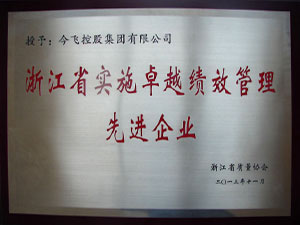 授予：今飞控股集团有限公司
浙江省实施卓越绩效管理
先进企业
浙江省质量协会
二〇一三年十一月